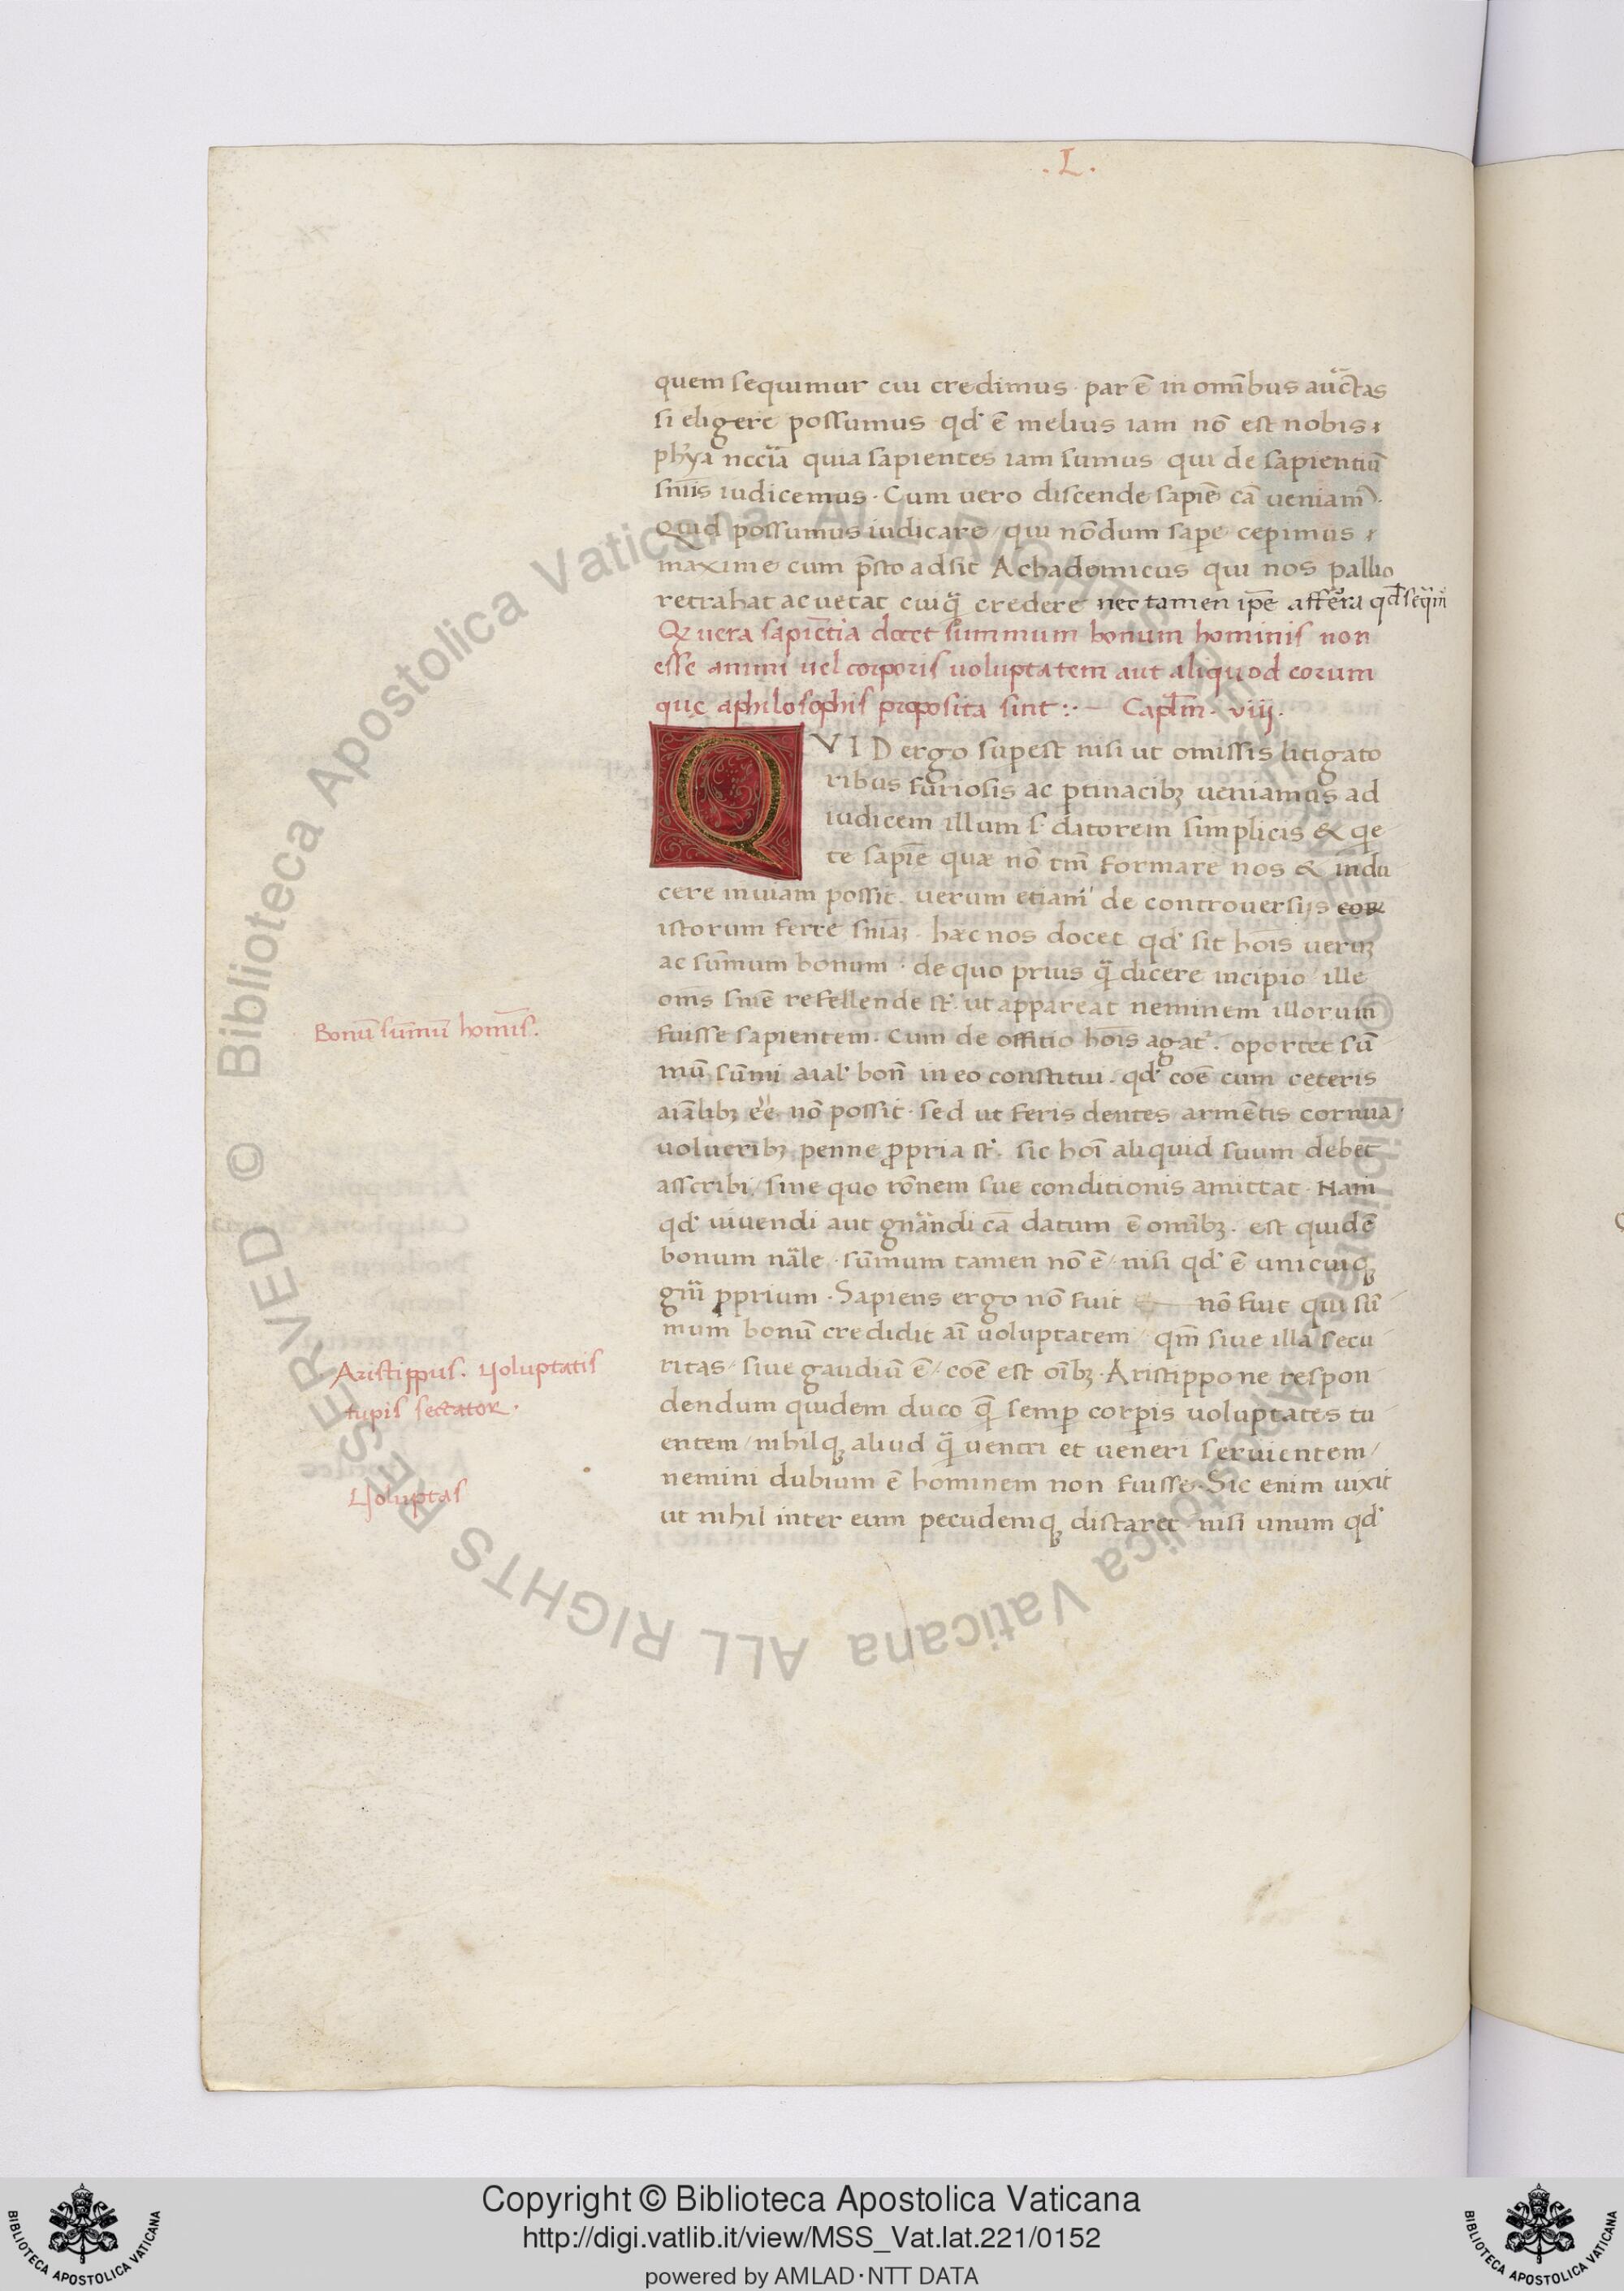 .L.
quem sequimur cui credimus · par ē in om̄ibus auc̄tas
si eligere possumus qd' ē melius iam nō est nobis
phỹa nccīa quia sapientes iam sumus qui de sapientiū
sniīs iudicemus · Cum uero discende sapiē cā ueniam'
Quid possumus iudicare / qui nōdum sape cepimus
maxime cum p̄sto adsit Achademicus qui nos pallio
retrahat ac uetat cuiq̄ credere nec tamen ip̄e affera qd' seq̄m
Q uera sapiētia docet summum bonum hominis non
esse animi uel corporis uoluptatem aut aliquod eorum
quę aphilosophis proposita sint :·— Capl̄m · viij ·
QVID ergo sup̱est nisi ut omissis litigato
ribus furiosis ac p̱tinacibꝫ ueniamus ad
iudicem illum s' datorem simplicis & q̱e
te sapiē quæ nō tm̄ formare nos & indu
cere inuiam possit · uerum etiam de controuersijs eoꝝ
istorum ferre sniaꝫ · hæc nos docet qd' sit hōis ueruꝫ
ac sūmum bonum · de quo prius q̄ dicere incipio / ille
om̄s snīe refellende st̄ · ut appareat neminem illorum
fuisse sapientem · Cum de offitio hōis agat' · oportet sū
mū sūmi aial' bon̄ in eo constitui · qd' coē cum ceteris
aiālibꝫ eē nō possit · sed ut feris dentes armētis cornua ·
uolucribꝫ penne p̱pria st̄ · sic hoī aliquid suum debet
asscribi / sine quo rōnem sue conditionis amittat · Nam
qd' uiuendi aut gnāndi cā datum ē omībꝫ · est quidē
bonum nāle · sūmum tamen nō ē / nisi qd' ē unicuiqꝫ
gn̄i p̱prium · Sapiens ergo nō fuit nō fuit qui sū
mum bonū credidit aī uoluptatem / qm̄ siue illa secu
ritas / siue gaudiū ē / coē est oībꝫ · Aristippo ne respon
dendum quidem duco q̄ semp̱ corp̱is uoluptates tu
entem / nihilqꝫ aliud q̄ uentri et ueneri seruientem /
nemini dubium ē hominem non fuisse · Sic enim uixit
ut nihil inter eum pecudemqꝫ distaret · nisi unum qd'
Bonū sūmū homīs.
Aristippus. Uoluptatis
tupis sectator.
Uoluptas
© Biblioteca Apostolica Vaticana ALL RIGHTS RESERVED
Copyright © Biblioteca Apostolica Vaticana
http://digi.vatlib.it/view/MSS_Vat.lat.221/0152
powered by AMLAD·NTT DATA
BIBLIOTECA APOSTOLICA VATICANA
BIBLIOTECA APOSTOLICA VATICANA